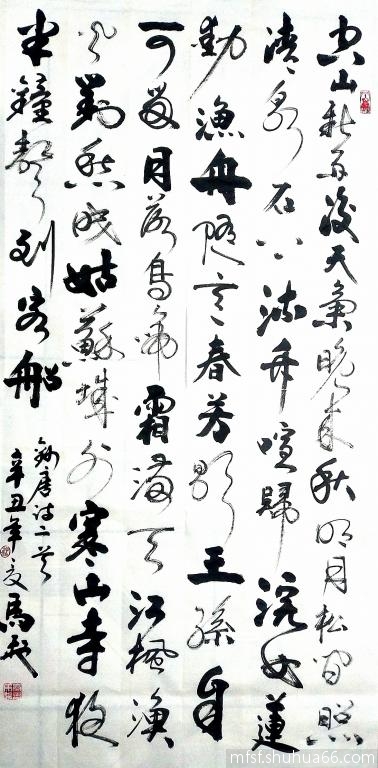 空山新雨後天氣晚來秋明月松間照
清泉石上流竹喧歸浣女蓮
動漁舟隨意春芳歇王孫自
可留月落烏啼霜滿天江楓漁
火對愁眠姑蘇城外寒山寺夜
半鐘聲到客船
錄唐詩二首
辛丑年夏馬
mfsf.shuhua66.com